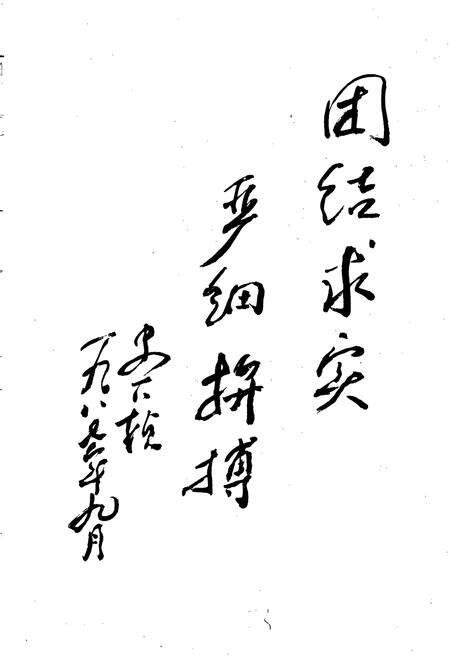 团结求实
严细拼搏
史大桢
一九八年九月